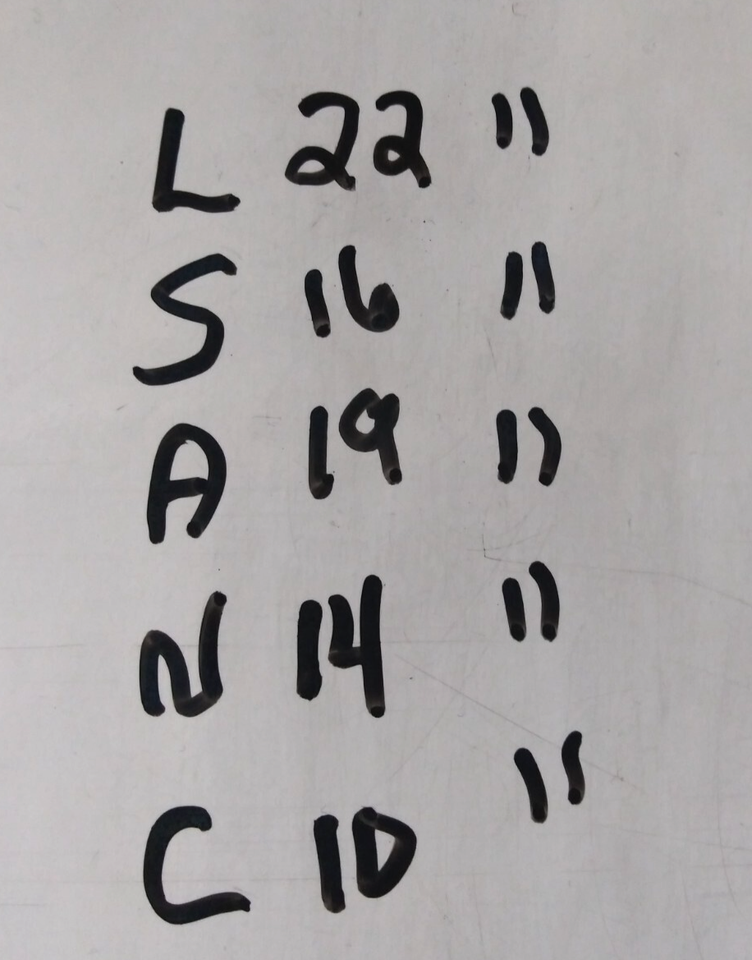 L 22 "
S 16 "
A 19 "
N 14 "
C 10 "